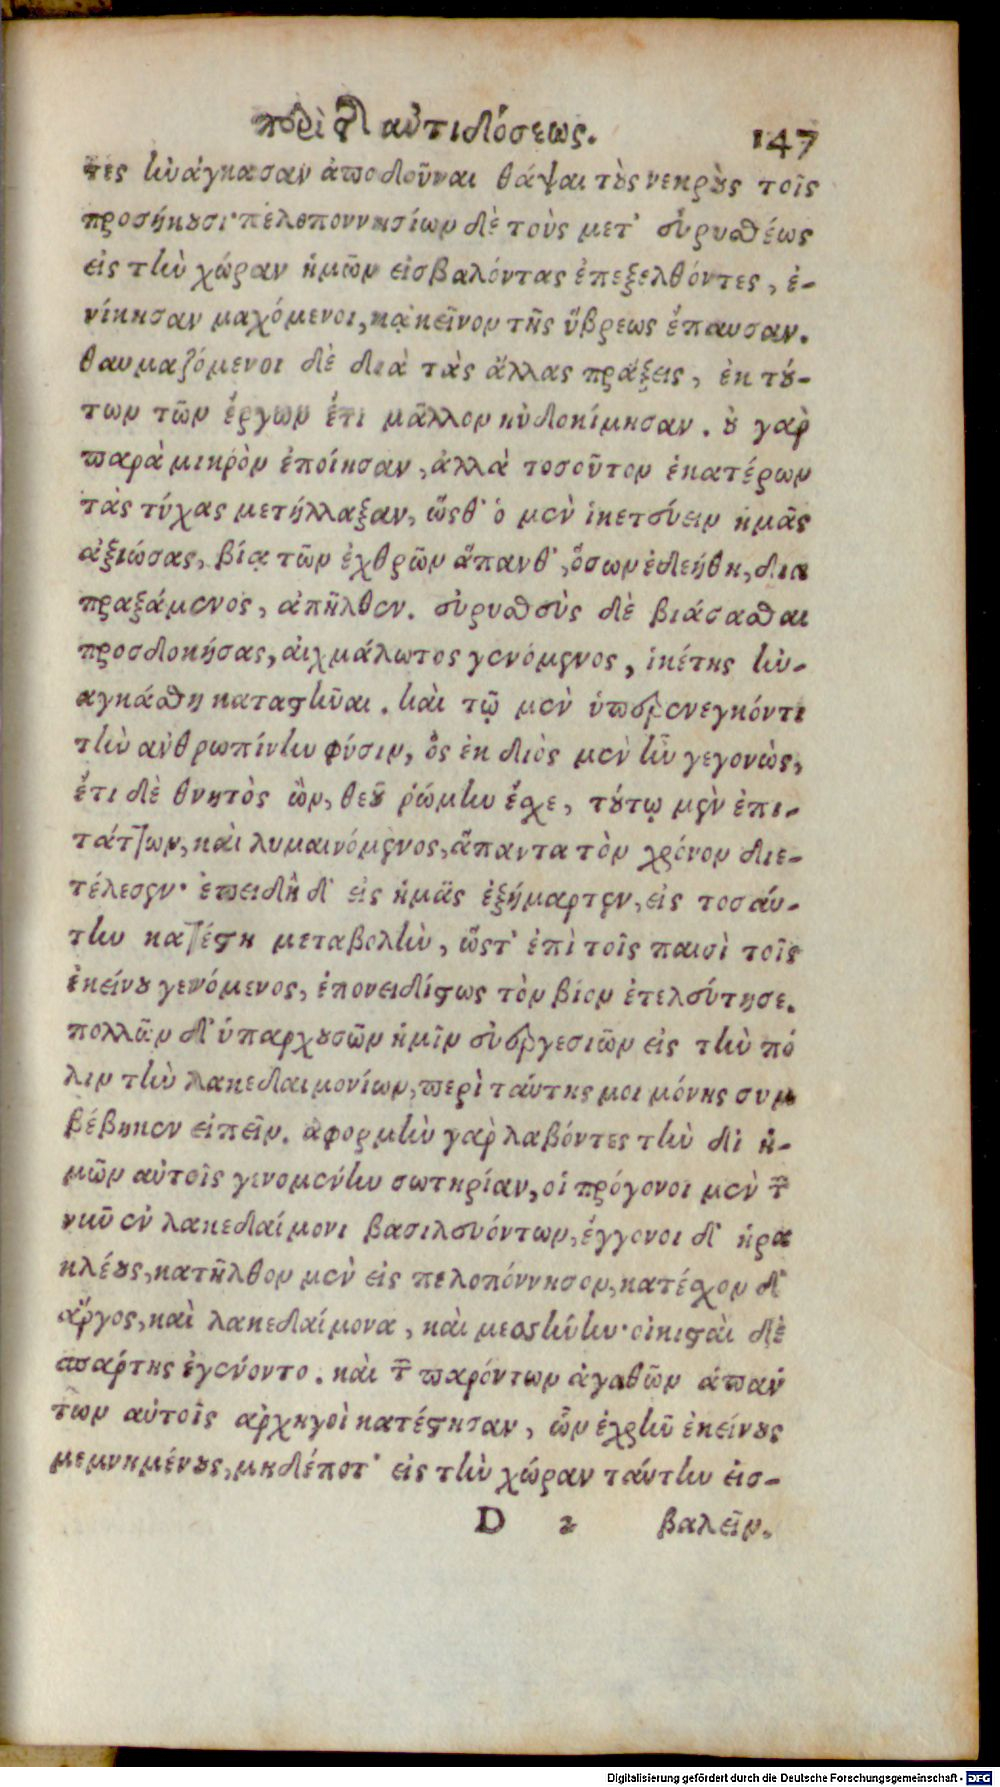 περὶ τῆς ἀντιδόσεως. 147
τες ἠνάγκασαν ἀποδοῦναι θάψαι τοὺς νεκροὺς τοῖς
προσήκουσι· πελοποννησίων δὲ τοὺς μετ' εὐρυσθέως
εἰς τὴν χώραν ἡμῶν εἰσβαλόντας ἐπεξελθόντες, ἐ-
νίκησαν μαχόμενοι, κᾀκεῖνον τῆς ὕβρεως ἔπαυσαν.
θαυμαζόμενοι δὲ διὰ τὰς ἄλλας πράξεις, ἐκ τού-
των τῶν ἔργων ἔτι μᾶλλον ηὐδοκίμησαν. οὐ γὰρ
παρὰ μικρὸν ἐποίησαν, ἀλλὰ τοσοῦτον ἑκατέρων
τὰς τύχας μετήλλαξαν, ὥσθ' ὁ μὲν ἱκετεύειν ἡμᾶς
ἀξιώσας, βίᾳ τῶν ἐχθρῶν ἅπανθ', ὅσων ἐδεήθη, δια
πραξάμενος, ἀπῆλθεν. εὐρυσθεὺς δὲ βιάσασθαι
προσδοκήσας, αἰχμάλωτος γενόμενος, ἱκέτης ἠν-
αγκάσθη καταστῆναι. καὶ τῷ μὲν ὑπερενεγκόντι
τὴν ἀνθρωπίνην φύσιν, ὃς ἐκ διὸς μὲν ἦν γεγονὼς,
ἔτι δὲ θνητὸς ὢν, θεοῦ ῥώμην ἔσχε, τούτῳ μὲν ἐπι-
τάττων, καὶ λυμαινόμενος, ἅπαντα τὸν χρόνον διε-
τέλεσεν· ἐπειδὴ δ' εἰς ἡμᾶς ἐξήμαρτεν, εἰς τοσαύ-
την κατέστη μεταβολὴν, ὥστ' ἐπὶ τοῖς παισὶ τοῖς
ἐκείνου γενόμενος, ἐπονειδίστως τὸν βίον ἐτελεύτησε.
πολλῶν δ' ὑπαρχουσῶν ἡμῖν εὐεργεσιῶν εἰς τὴν πό
λιν τὴν λακεδαιμονίων, περὶ ταύτης μοι μόνης συμ
βέβηκεν εἰπεῖν. ἀφορμὴν γὰρ λαβόντες τὴν δι' ἡ-
μῶν αὐτοῖς γινομένην σωτηρίαν, οἱ πρόγονοι μὲν τῶν
νῦν ἐν λακεδαίμονι βασιλευόντων, ἔγγονοι δ' ἡρα
κλέους, κατῆλθον μὲν εἰς πελοπόννησον, κατέσχον δ'
ἄργος, καὶ λακεδαίμονα, καὶ μεσσήνην· οἰκισταὶ δὲ
σπάρτης ἐγένοντο. καὶ τῶν παρόντων ἀγαθῶν ἁπάν
των αὐτοῖς ἀρχηγοὶ κατέστησαν, ὧν ἐχρῆν ἐκείνους
μεμνημένους, μηδέποτ' εἰς τὴν χώραν ταύτην εἰσ-
D 2 βαλεῖν,
Digitalisierung gefördert durch die Deutsche Forschungsgemeinschaft - DFG